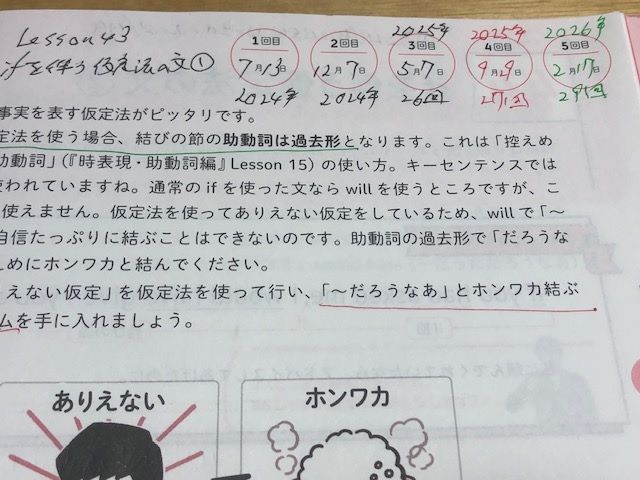 Lesson 43
ifを伴う仮定法の文①
1回目 2回目 3回目 4回目 5回目
2025年 2025年 2026年
7月13日 12月7日 5月7日 9月29日 2月17日
2024年 2024年 26回 27回 29回
事実を表す仮定法がピッタリです。
定法を使う場合、結びの節の助動詞は過去形となります。これは「控えめ
助動詞」(『時表現・助動詞編』Lesson 15)の使い方。キーセンテンスでは
使われていますね。通常のifを使った文ならwillを使うところですが、こ
使えません。仮定法を使ってありえない仮定をしているため、willで「〜
自信たっぷりに結ぶことはできないのです。助動詞の過去形で「だろうな
えめにホンワカと結んでください。
えない仮定」を仮定法を使って行い、「〜だろうなあ」とホンワカ結ぶ
ムを手に入れましょう。
ありえない
ホンワカ